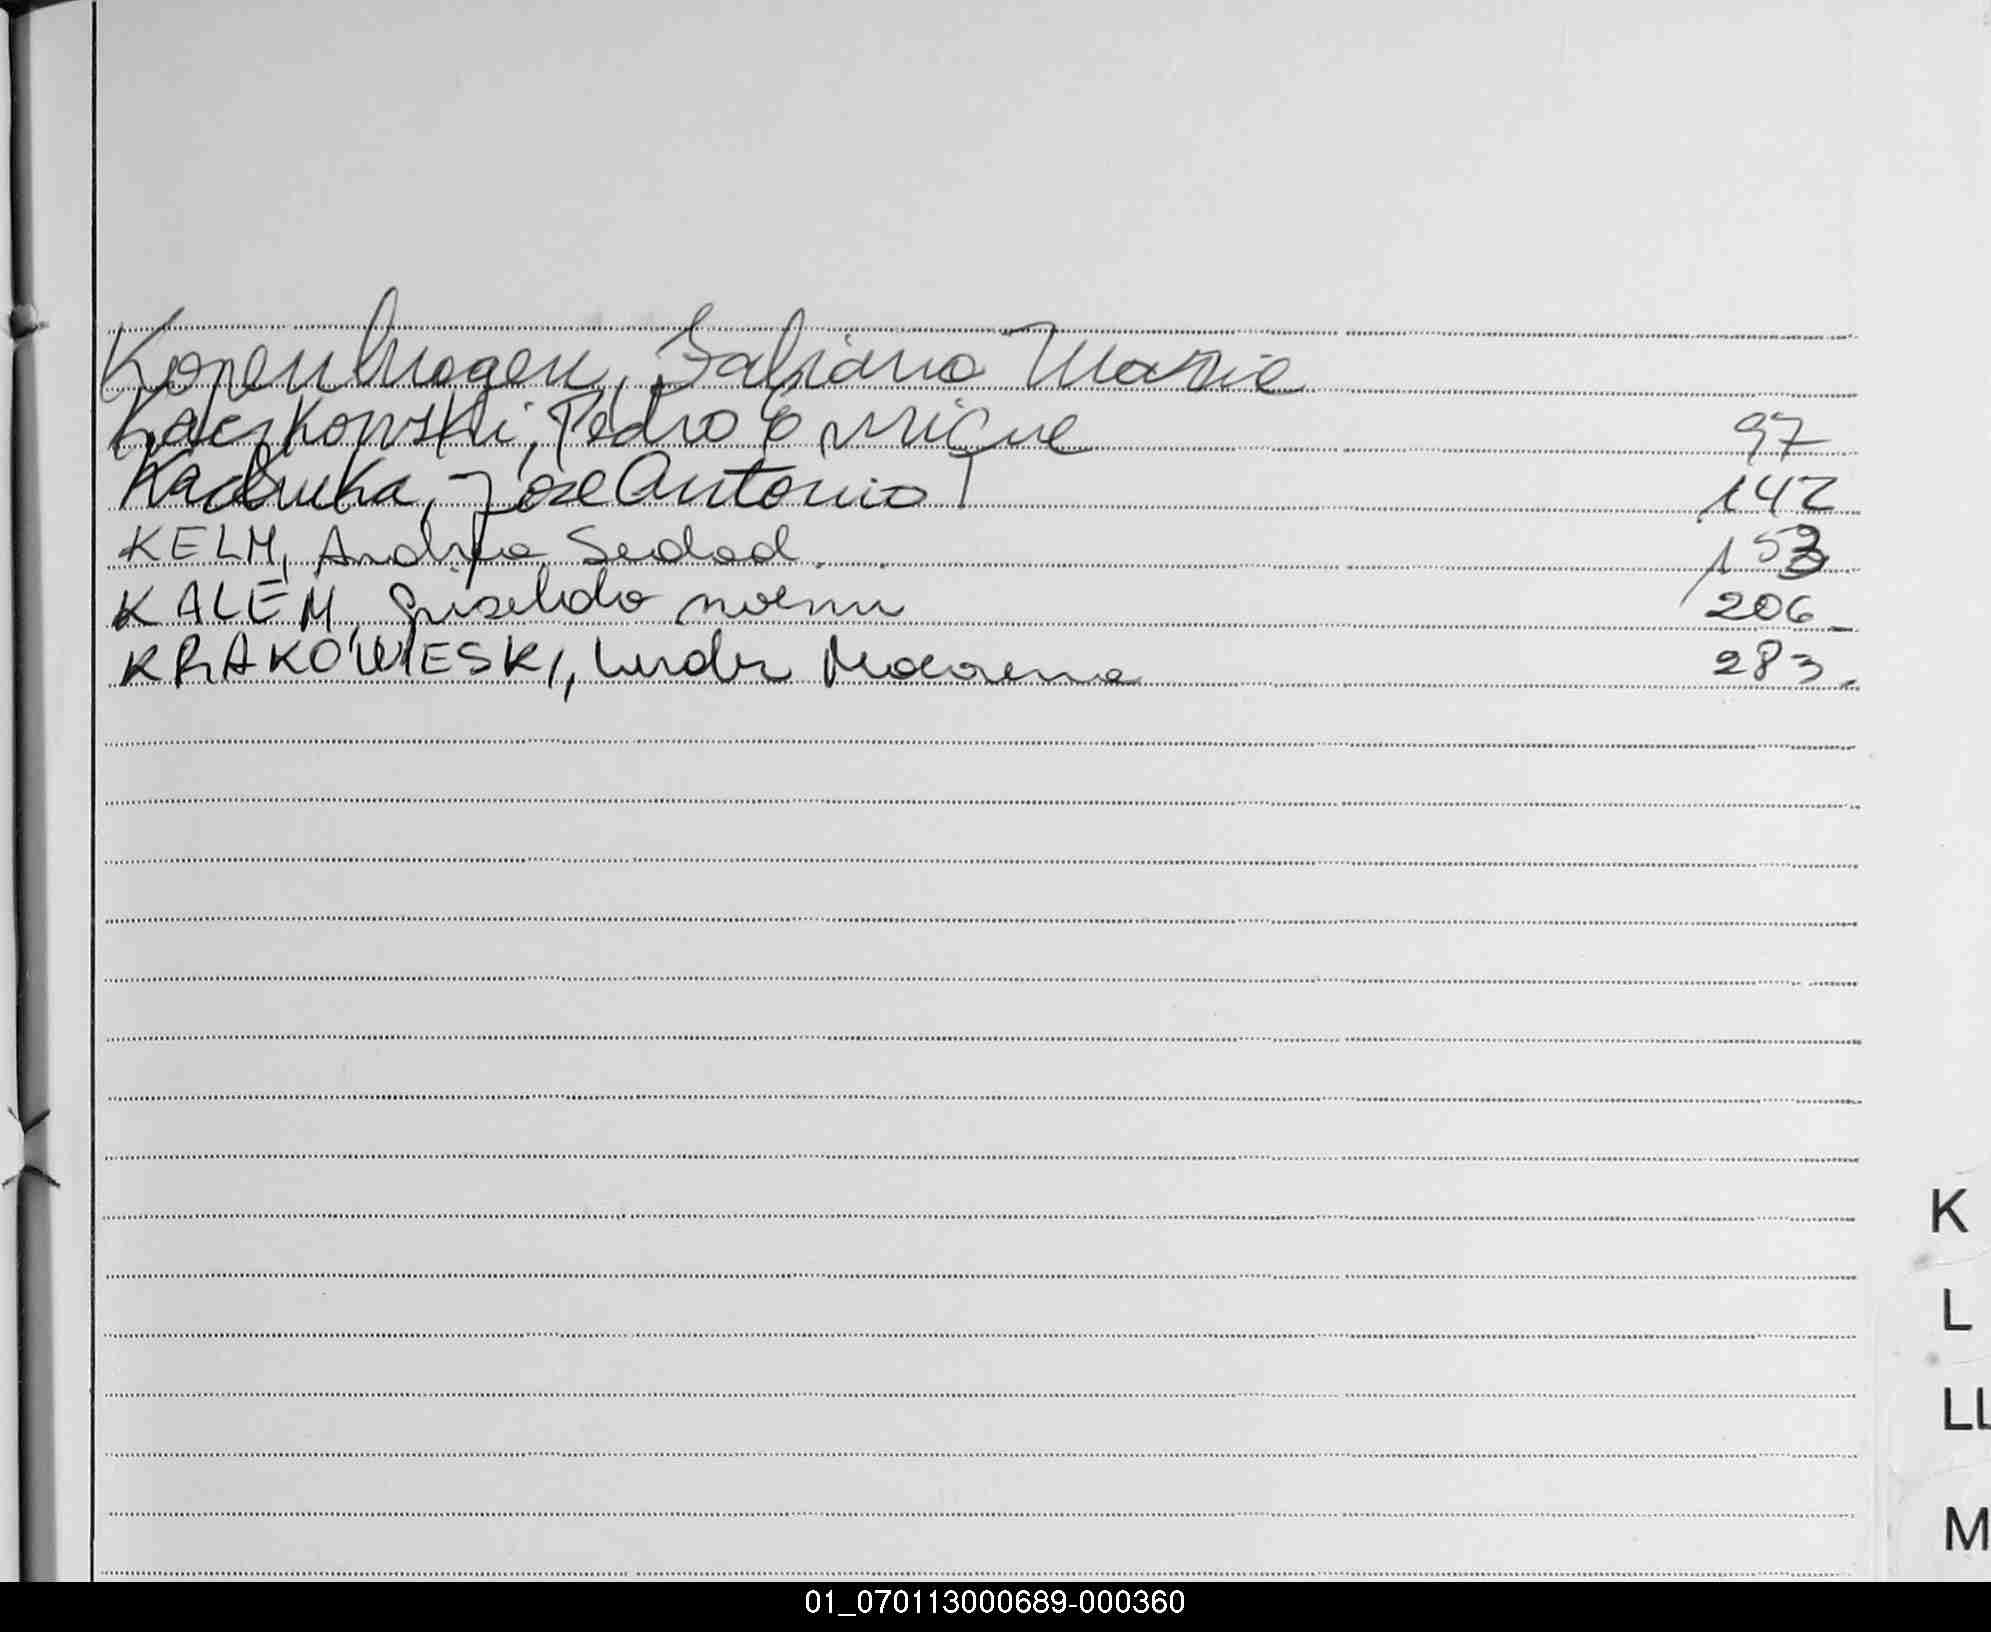 Kopenhagen, Fabiana Maria
Kaczkowski, Pedro Enrique 97
Kadluka, Jose Antonio 142
KELM, Andrea Soledad 153
KALEM, Griselda Noemi 206
KRAKOWIESKI, Macarena 283
K
L
LL
M
01_070113000689-000360